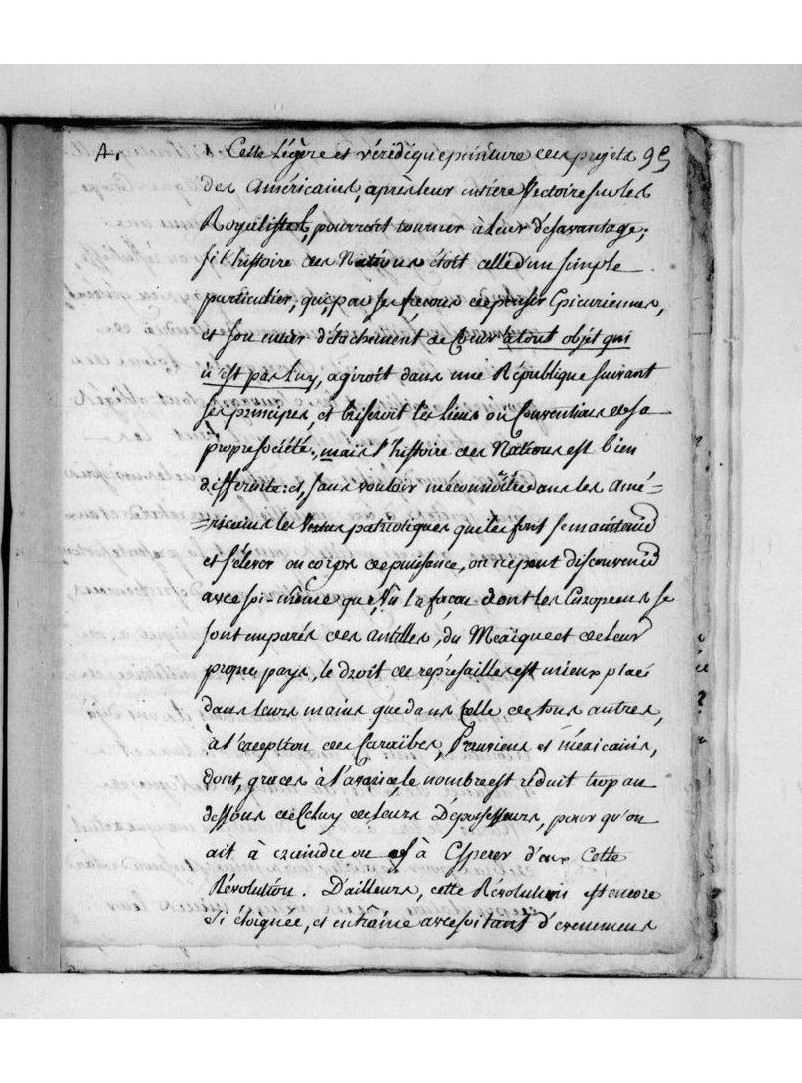 A. Cette légère et véridique peinture des projets 95
des Américains, après leur entière Victoire sur les
Royalistes, pourroit tourner à leur désavantage;
si l'histoire des Nations étoit celle d'un simple
particulier, qui, par se secours de penser Epicuriennes,
et son entier détachement de Cœur à tout objet qui
n'est pas luy, agiroit dans une République suivant
ses principes, et briseroit les liens ou Conventions de sa
propre société, mais l'histoire des Nations est bien
differente: et, sans vouloir méconnoître dans les Amé=
=ricains les Vertus patriotiques qui les font se maintenir
et s'élever en corps de puissance, on ne peut disconvenir
avec soi-même que, Vu la façon dont les Européens se
sont emparés des antilles, du Mexique et de leur
propre pays, le droit de représailles est mieux placé
dans leurs mains que dans Celle de tous autres,
à l'exception des Caraïbes, Péruviens et méxicains,
dont, graces à l'avarice, le nombre est réduit trop au
dessous de Celuy de leurs Dépossesseurs, pour qu'on
ait à craindre ou à Esperer d'eux Cette
Révolution. D'ailleurs, cette Révolution est encore
si éloignée, et entraîne avec soi tant d'evenemens